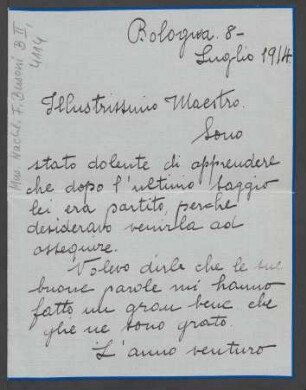 Mus. Nachl. F. Busoni B II, 4114
Bologna. 8-
Luglio 1914
Illustrissimo Maestro.
Sono
stato dolente di apprendere
che dopo l'ultimo saggio
lei era partito, perche
desideravo venirla ad
ossequire.
Volevo dirle che le sue
buone parole mi hanno
fatto un gran bene che
glie ne sono grato.
L'anno venturo